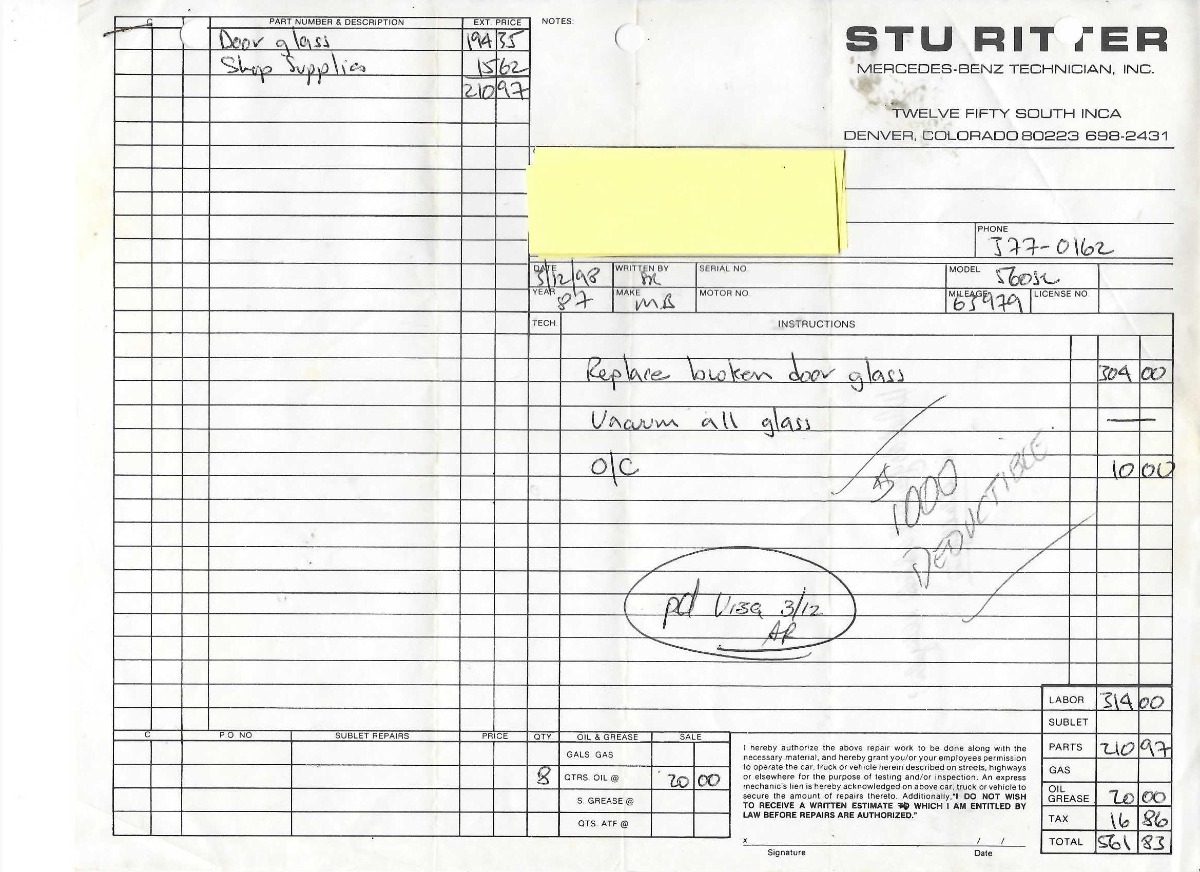 C PART NUMBER & DESCRIPTION EXT. PRICE
Door glass 194 35
Shop Supplies 15 62
210 97
NOTES:
STU RITTER
MERCEDES-BENZ TECHNICIAN, INC.
TWELVE FIFTY SOUTH INCA
DENVER, COLORADO 80223 698-2431
PHONE
377-0162
DATE 3/12/98 WRITTEN BY SERIAL NO. MODEL 560SL
YEAR 87 MAKE MB MOTOR NO. MILEAGE 65979 LICENSE NO.
TECH. INSTRUCTIONS
Replace broken door glass 304 00
Vacuum all glass —
O/C 10 00
$ 1000
DEDUCTIBLE
pd Visa 3/12
AR
LABOR 314 00
SUBLET
PARTS 210 97
GAS
OIL GREASE 20 00
TAX 16 86
TOTAL 561 83
C P O NO SUBLET REPAIRS PRICE QTY OIL & GREASE SALE
GALS GAS
8 QTRS. OIL @ 20 00
S. GREASE @
QTS. ATF @
I hereby authorize the above repair work to be done along with the
necessary material, and hereby grant you/your employees permission
to operate the car, truck or vehicle herein described on streets, highways
or elsewhere for the purpose of testing and/or inspection. An express
mechanic's lien is hereby acknowledged on above car, truck or vehicle to
secure the amount of repairs thereto. Additionally, "I DO NOT WISH
TO RECEIVE A WRITTEN ESTIMATE TO WHICH I AM ENTITLED BY
LAW BEFORE REPAIRS ARE AUTHORIZED."
x / /
Signature Date